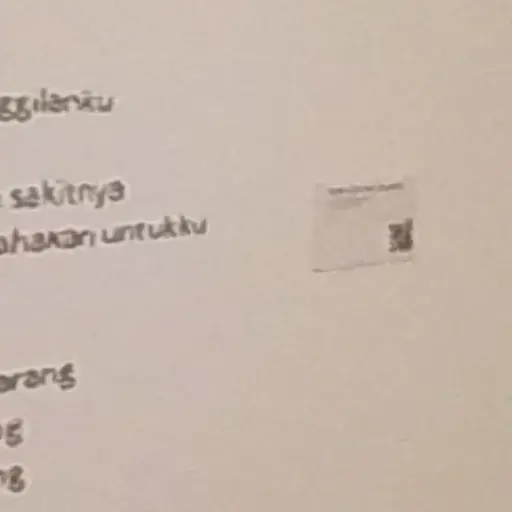 ggilanku
sakitnya
ahakan untukku
arang
ng
ng